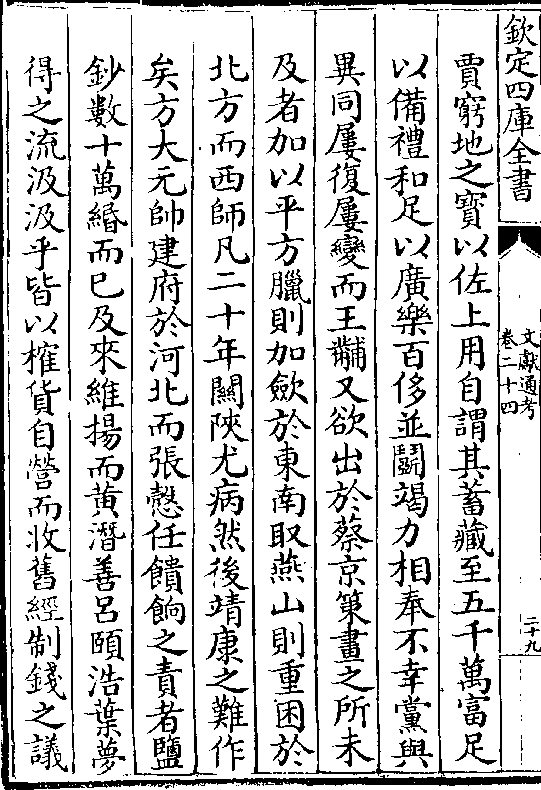 欽定四庫全書
文獻通考
卷二十四
二十九
賈窮地之寶以佐上用自謂其蓄藏至五千萬富足
以備禮和足以廣樂百侈並鬭竭力相奉不幸黨與
異同屢復屢變而王黼又欲出於蔡京策畫之所未
及者加以平方臘則加歛於東南取燕山則重困於
北方而西師凡二十年關陝尤病然後靖康之難作
矣方大元帥建府於河北而張慤任饋餉之責者鹽
鈔數十萬緡而已及來維揚而黄潛善吕頤浩葉夢
得之流汲汲乎皆以榷貨自營而收舊經制錢之議